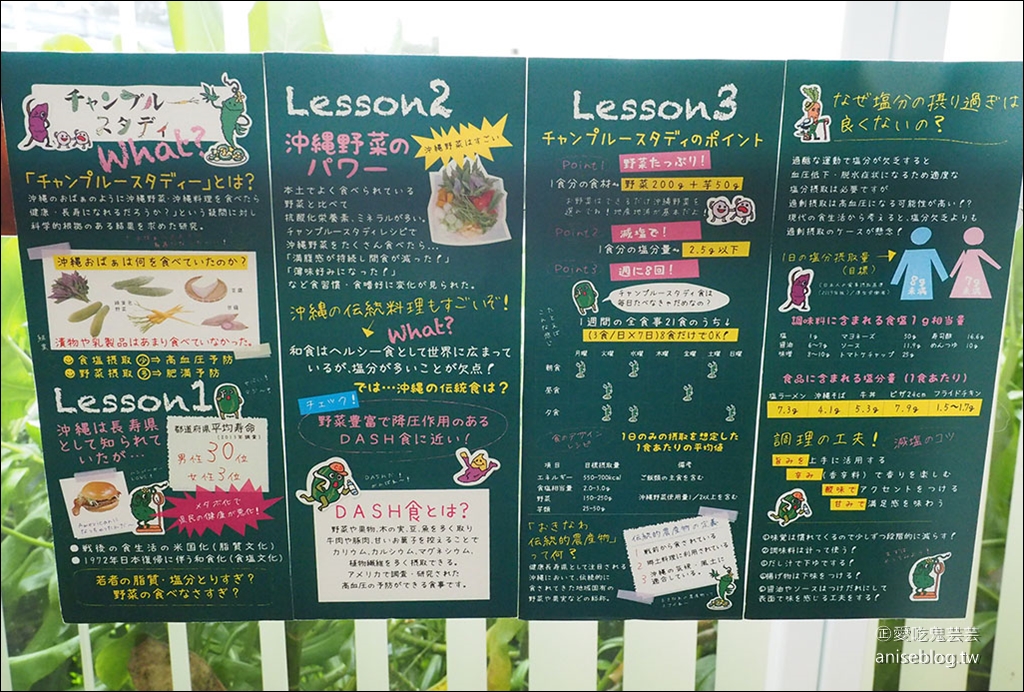 チャンプルー
スタディ
What?
「チャンプルースタディー」とは?
沖縄のおばぁのように沖縄野菜・沖縄料理を食べたら
健康・長寿になれるだろうか?」という疑問に対し
科学的根拠のある結果を求めた研究。
沖縄おばぁは何を食べていたのか?
漬物や乳製品はあまり食べていなかった。
食塩摂取少⇒高血圧予防
野菜摂取多⇒肥満予防
Lesson1
沖縄は長寿県
として知られて
いたが…
都道府県平均寿命
男性30位
女性3位
メタボ化で
県民の健康が悪化!
●戦後の食生活の米国化(脂質文化)
●1972年日本復帰に伴う和食化(食塩文化)
若者の脂質・塩分とりすぎ?
野菜の食べなさすぎ?
Lesson2
沖縄野菜の
パワー
沖縄野菜はすごい
本土でよく食べられている
野菜と比べて
抗酸化栄養素、ミネラルが多い。
チャンプルースタディレシピで
沖縄野菜をたくさん食べたら…
「満腹感が持続し間食が減った!」
「薄味好みになった!」
など食習慣・食嗜好に変化が見られた。
沖縄の伝統料理もすごいぞ!
What?
和食はヘルシー食として世界に広まって
いるが、塩分が多いことが欠点!
では…沖縄の伝統食は?
チェック!
野菜豊富で降圧作用のある
DASH食に近い!
DASH食とは?
野菜や果物、木の実、豆、魚を多く取り
牛肉や豚肉、甘いお菓子を控えることで
カリウム、カルシウム、マグネシウム、
植物繊維を多く摂取できる。
アメリカで調査・研究された
高血圧の予防ができる食事です。
Lesson3
チャンプルースタディのポイント
Point1 野菜たっぷり!
1食分の食材… 野菜200g+芋50g
お野菜はできるだけ沖縄野菜を
選のでね!地産地消が基本だよ!
Point2 減塩で!
1食分の塩分量… 2.5g以下
Point3 週に8回!
チャンプルースタディ食は
毎日たべなきゃだめなの?
1週間の全食事21食のうち↓
(3食/日×7日)8食だけでOK!
月曜 火曜 水曜 木曜 金曜 土曜 日曜
朝食
昼食
夕食
1日のみの摂取を想定した
1食あたりの平均値
項目 目標摂取量 備考
エネルギー 550-700kcal ご飯類の主食を含む
食塩相当量 2.0-3.0g
野菜 150-250g 沖縄野菜使用量1/2以上を含む
芋類 25-50g
「おきなわ
伝統的農産物」
って何?
健康長寿県として注目される
沖縄において、伝統的に
食されてきた地域固有の
野菜や果実などの総称。
伝統的農産物の定義
1 戦前から食されている
2 郷土料理に利用されている
3 沖縄の気候・風土に
適合している。
なぜ塩分の摂り過ぎは
良くないの?
過酷な運動で塩分が欠乏すると
血圧低下・脱水症状になるため適度な
塩分摂取は必要ですが
過剰摂取は高血圧になる可能性が高い!?
現代の食生活から考えると、塩分欠乏よりも
過剰摂取のケースが懸念!
1日の塩分摂取量
(目標)
8g
未満
7g
未満
調味料に含まれる食塩1g相当量
塩 1g マヨネーズ 50g 寿司酢 16.6g
醤油 6~7g ソース 11.9g めんつゆ 10g
味噌 8~10g トマトケチャップ 25g
食品に含まれる塩分量(1食あたり)
塩ラーメン 沖縄そば 牛丼 ピザ24cm フライドチキン
7.3g 4.1g 5.3g 7.9g 1.5~1.7g
調理の工夫! 減塩のコツ
旨みを上手に活用する
辛み(香辛料)で香りを楽しむ
酸味でアクセントをつける
甘みで満足感を味わう
①味覚は慣れてくるので少しずつ段階的に減らす!
②調味料は計って使う!
③だし汁で下ゆでする!
④揚げ物は下味をつける!
⑤醤油やソースはつけだれにして
表面で味を感じる工夫をする!
㊣愛吃鬼芸芸
aniseblog.tw